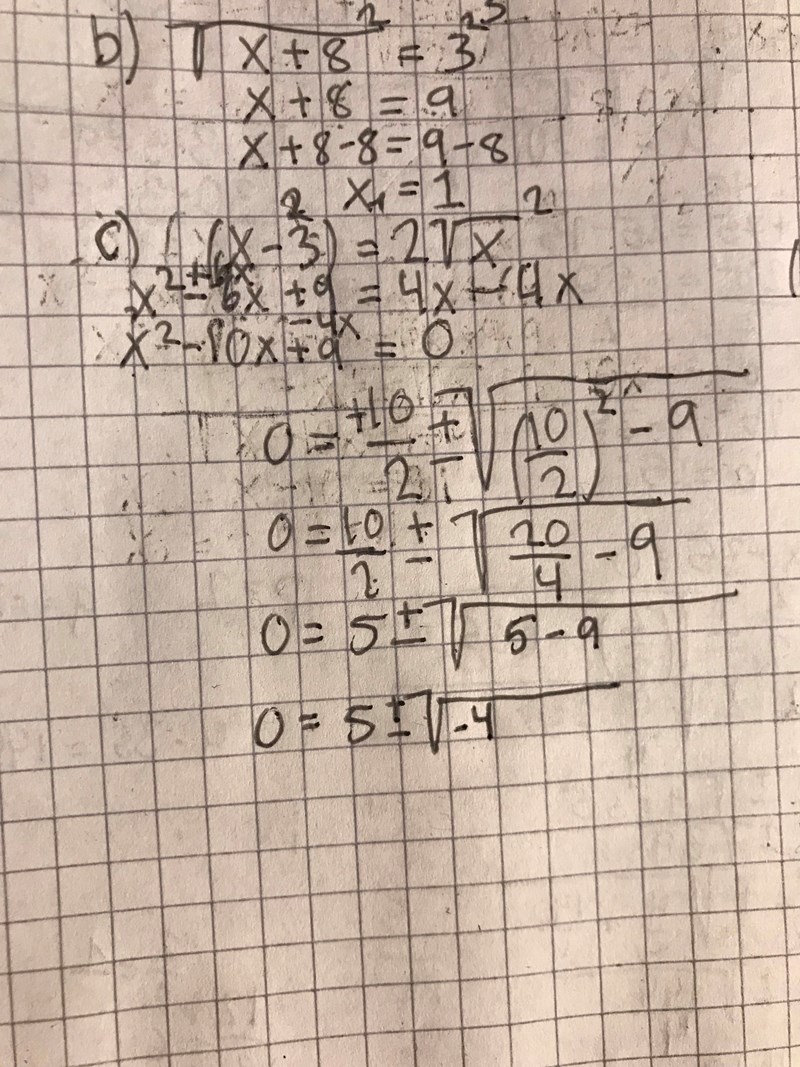 b) √(x+8)² = 3²
x+8 = 9
x+8-8=9-8
x₁ = 1
c) (x-3)² = 2√x²
x² - 6x + 9 = 4x - 4x
x² - 10x + 9 = 0
0 = +10/2 ± √((10/2)² - 9)
0 = 10/2 ± √(20/4 - 9)
0 = 5 ± √(5-9)
0 = 5 ± √(-4)